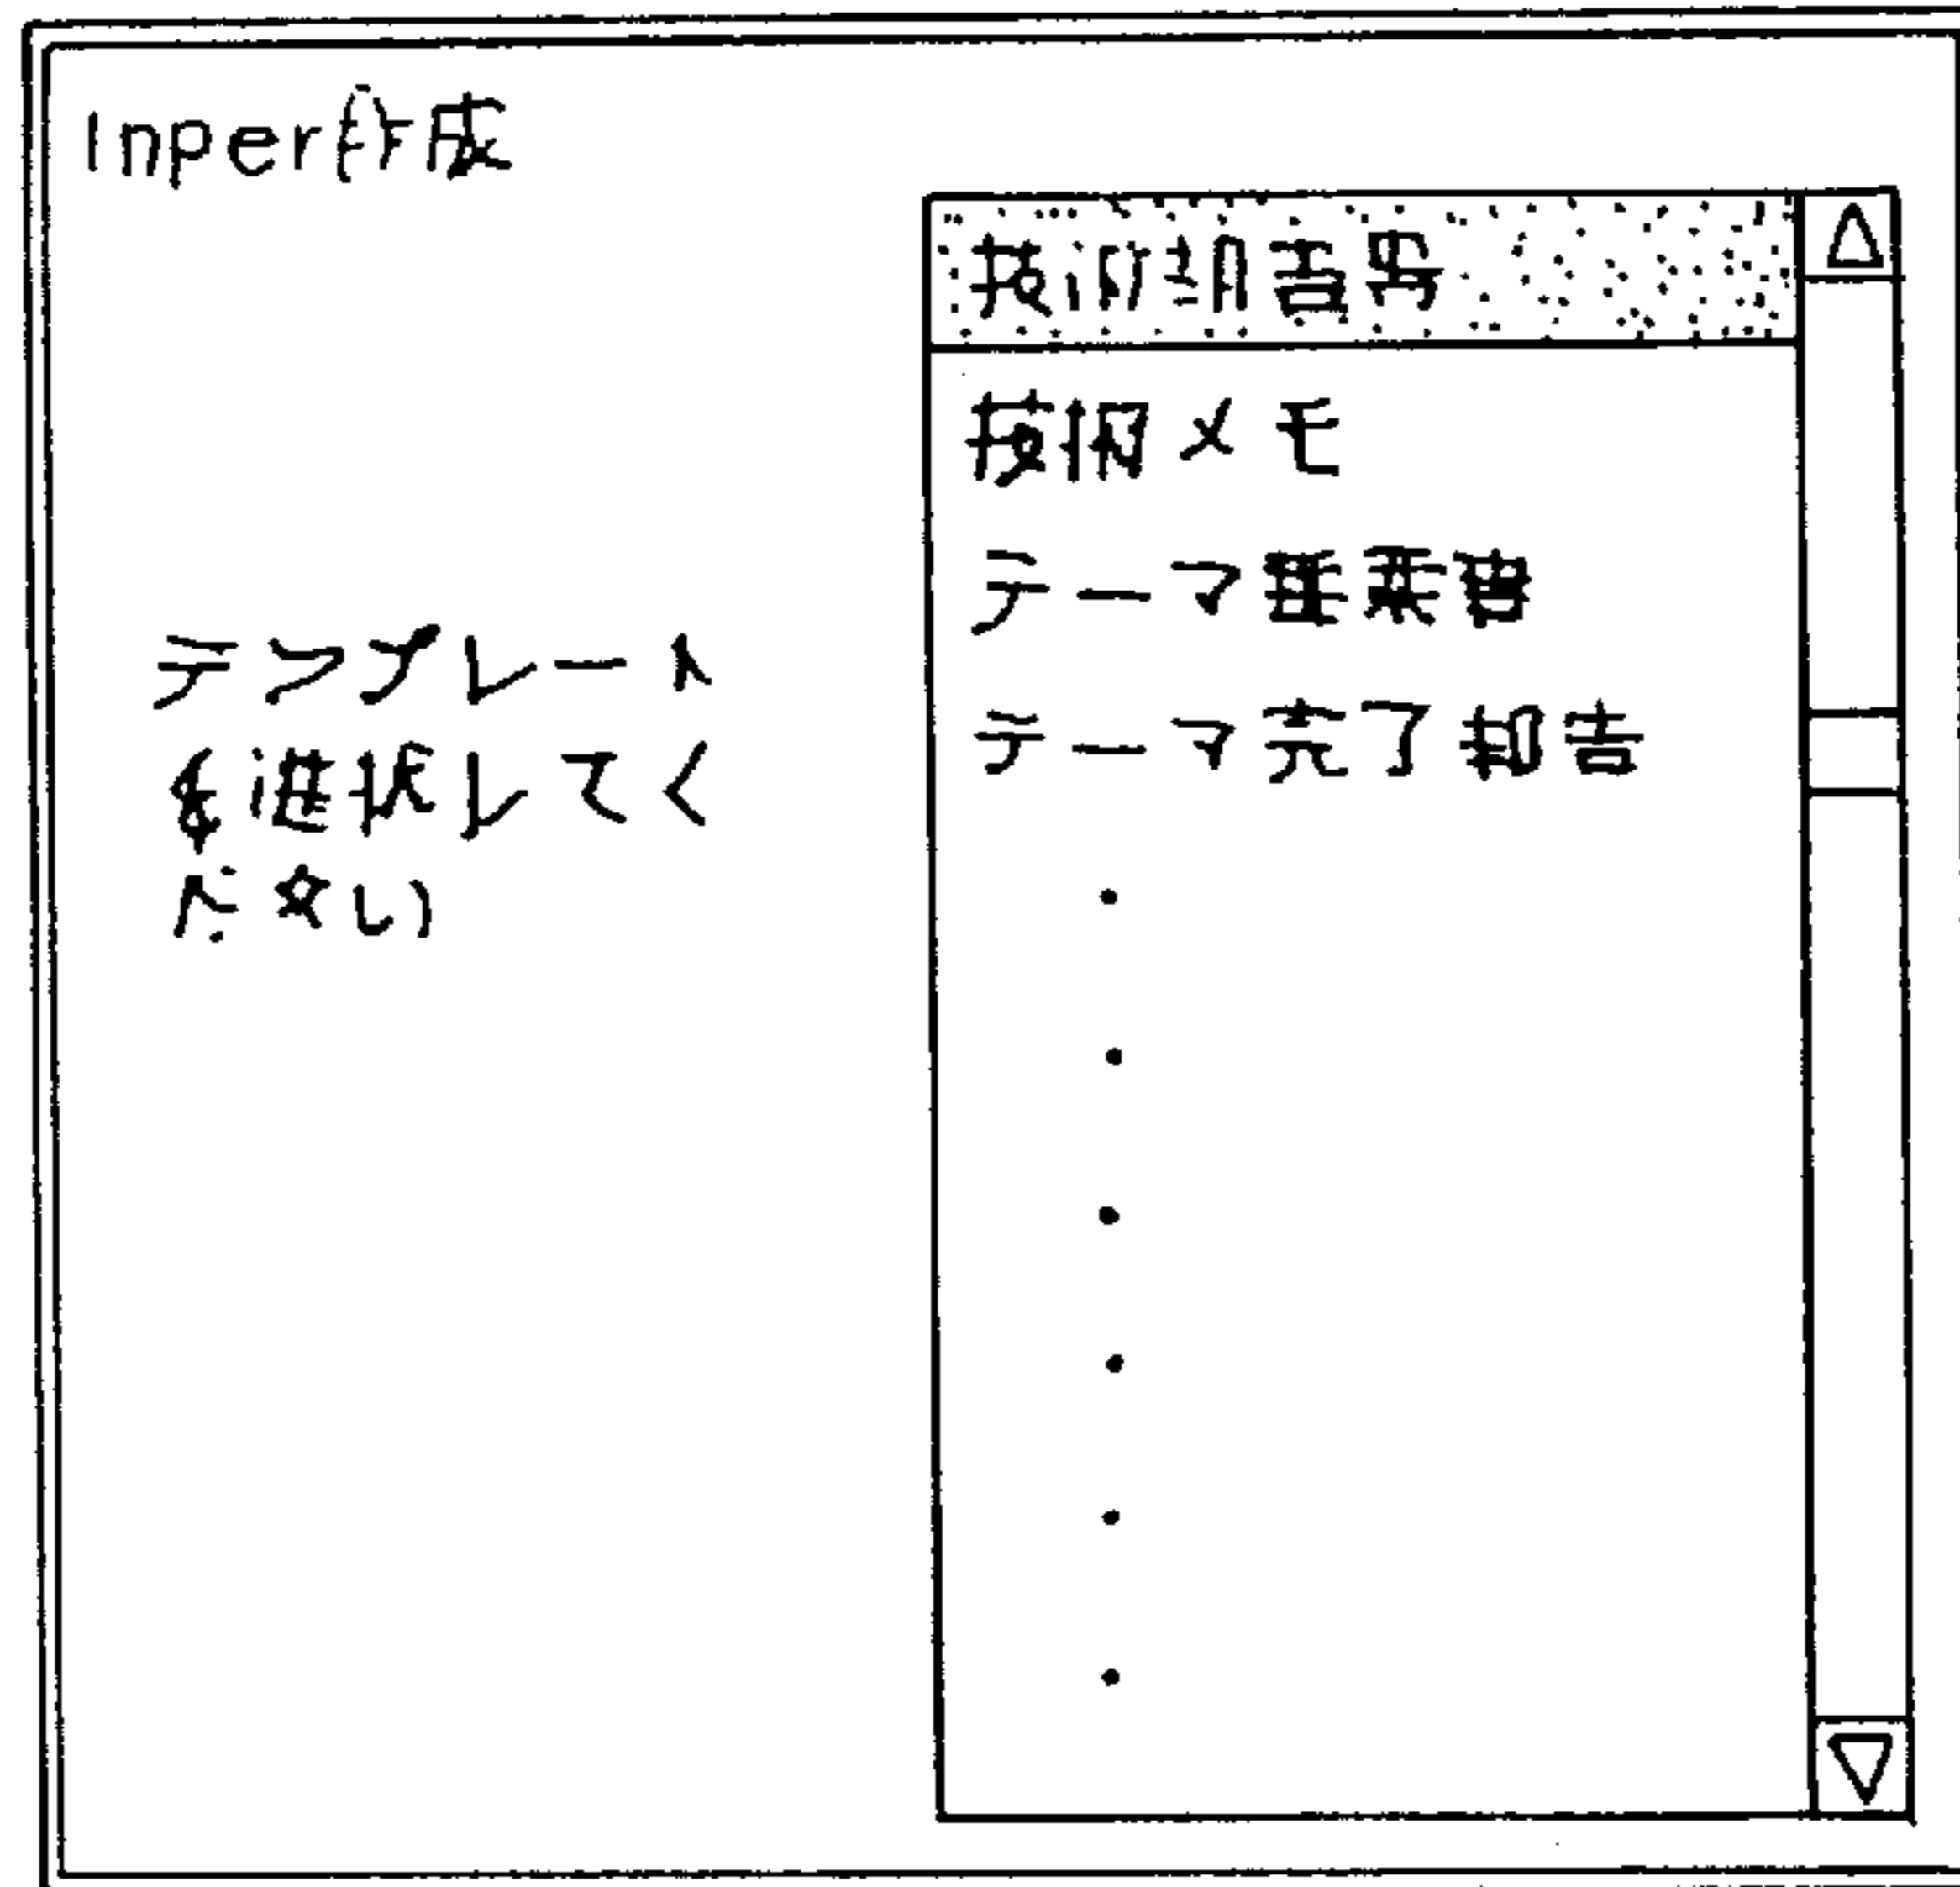 Inper作成
テンプレート
を選択してく
ださい
技術報告書
技術メモ
テーマ提案書
テーマ完了報告